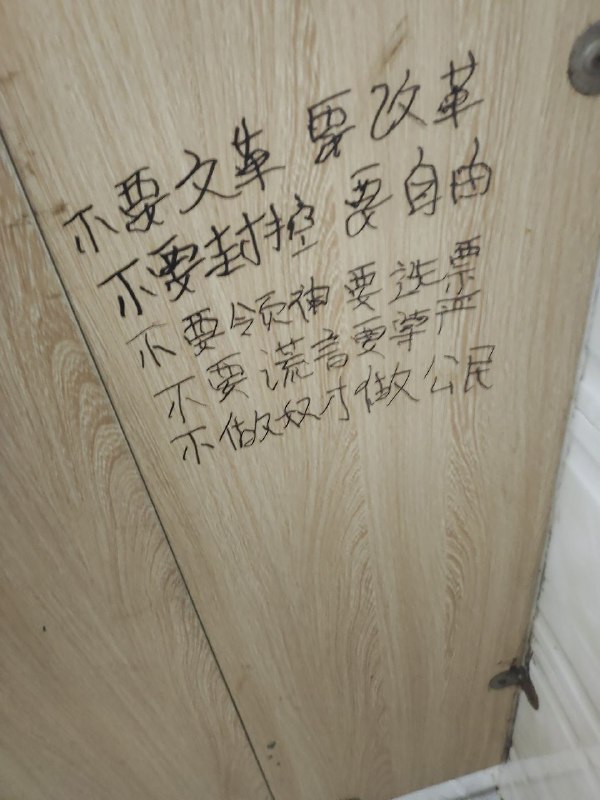 不要文革 要改革
不要封控 要自由
不要领袖 要选票
不要谎言要尊严
不做奴才做公民